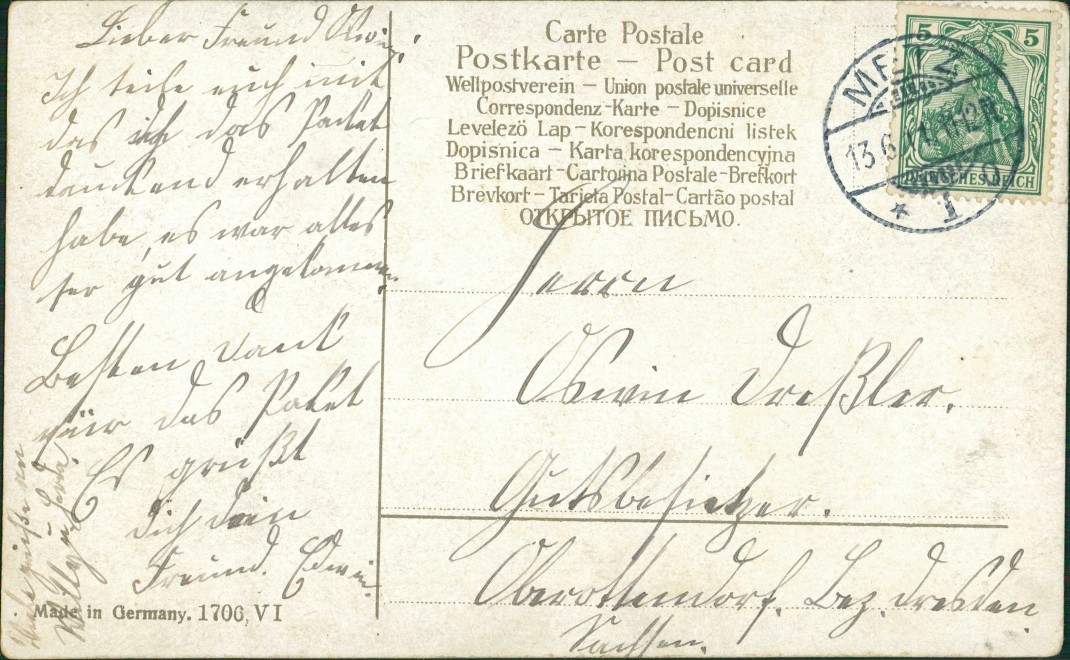 Lieber Freund
Ich teile euch mit
das ich das Packet
dankend erhalten
habe, es war alles
ser gut angekommen.
Besten Dank
für das Paket
Es grüßt
dich dein
Freund. Edwin
Made in Germany. 1706, VI
Carte Postale
Postkarte – Post card
Weltpostverein – Union postale universelle
Correspondenz-Karte – Dopisnice
Levelező Lap – Korespondencni listek
Dopisnica – Karta korespondencyjna
Briefkaart – Cartolina Postale – Brefkort
Brevkort – Tarjeta Postal – Cartão postal
ОТКРЫТОЕ ПИСЬМО.
5 5
DEUTSCHES REICH
13.6.
* 1
Herrn
Oswin Dreßler.
Gutsbesitzer.
Oberottendorf. Bez. Dresden.
Sachsen.